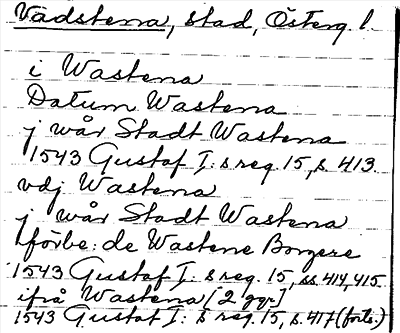 Vadstena, stad, Österg. l.
i Wastena
Datum Wastena
j wår Stadt Wastena
1543 Gustaf I:s reg. 15, s. 413.
vdj Wastena
j wår Stadt Wastena
förbe: de Wastene Borgere
1543 Gustaf I:s reg. 15, ss. 414, 415.
ifrå Wastena [2 ggr]
1543 Gustaf I:s reg. 15, s. 417 (forts.)